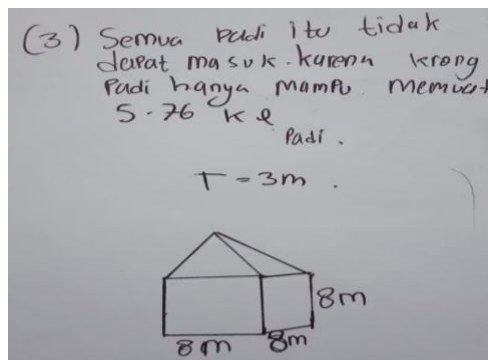 (3) Semua padi itu tidak
dapat masuk. karena krong
Padi hanya mampu memuat
5.76 kl
Padi.
T = 3m.
8m
8m 8m